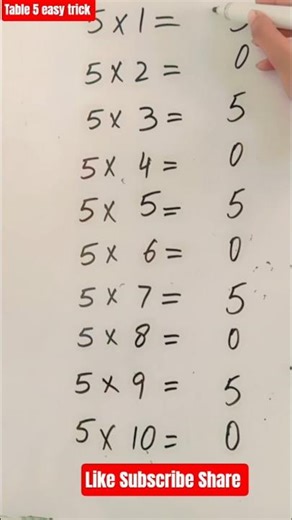 Table 5 easy trick
5 x 1 = 5
5 x 2 = 0
5 x 3 = 5
5 x 4 = 0
5 x 5 = 5
5 x 6 = 0
5 x 7 = 5
5 x 8 = 0
5 x 9 = 5
5 x 10 = 0
Like Subscribe Share